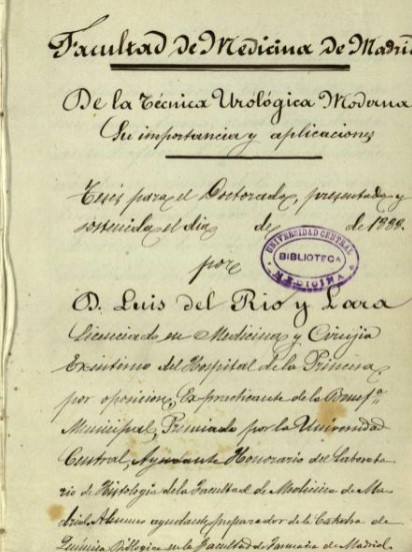 Facultad de Medicina de Madri
De la Técnica Urológica Moderna
Su importancia y aplicaciones
Tesis para el Doctorado, presentada y
sostenida el dia de de 1888.
por
UNIVERSIDAD CENTRAL
BIBLIOTECA
MEDICINA
D. Luis del Rio y Lara
Licenciado en Medicina y Cirujia
Exinterno del Hospital de la Princesa
por oposicion, Expracticante de la Benefª
Municipal, Premiado por la Universidad
Central, Ayudante Honorario del Laborato
rio de Histologia de la Facultad de Medicina de Ma
drid, Alumno ayudante preparador de la Catedra de
Quimica Biologica en la Facultad de Farmacia de Madrid